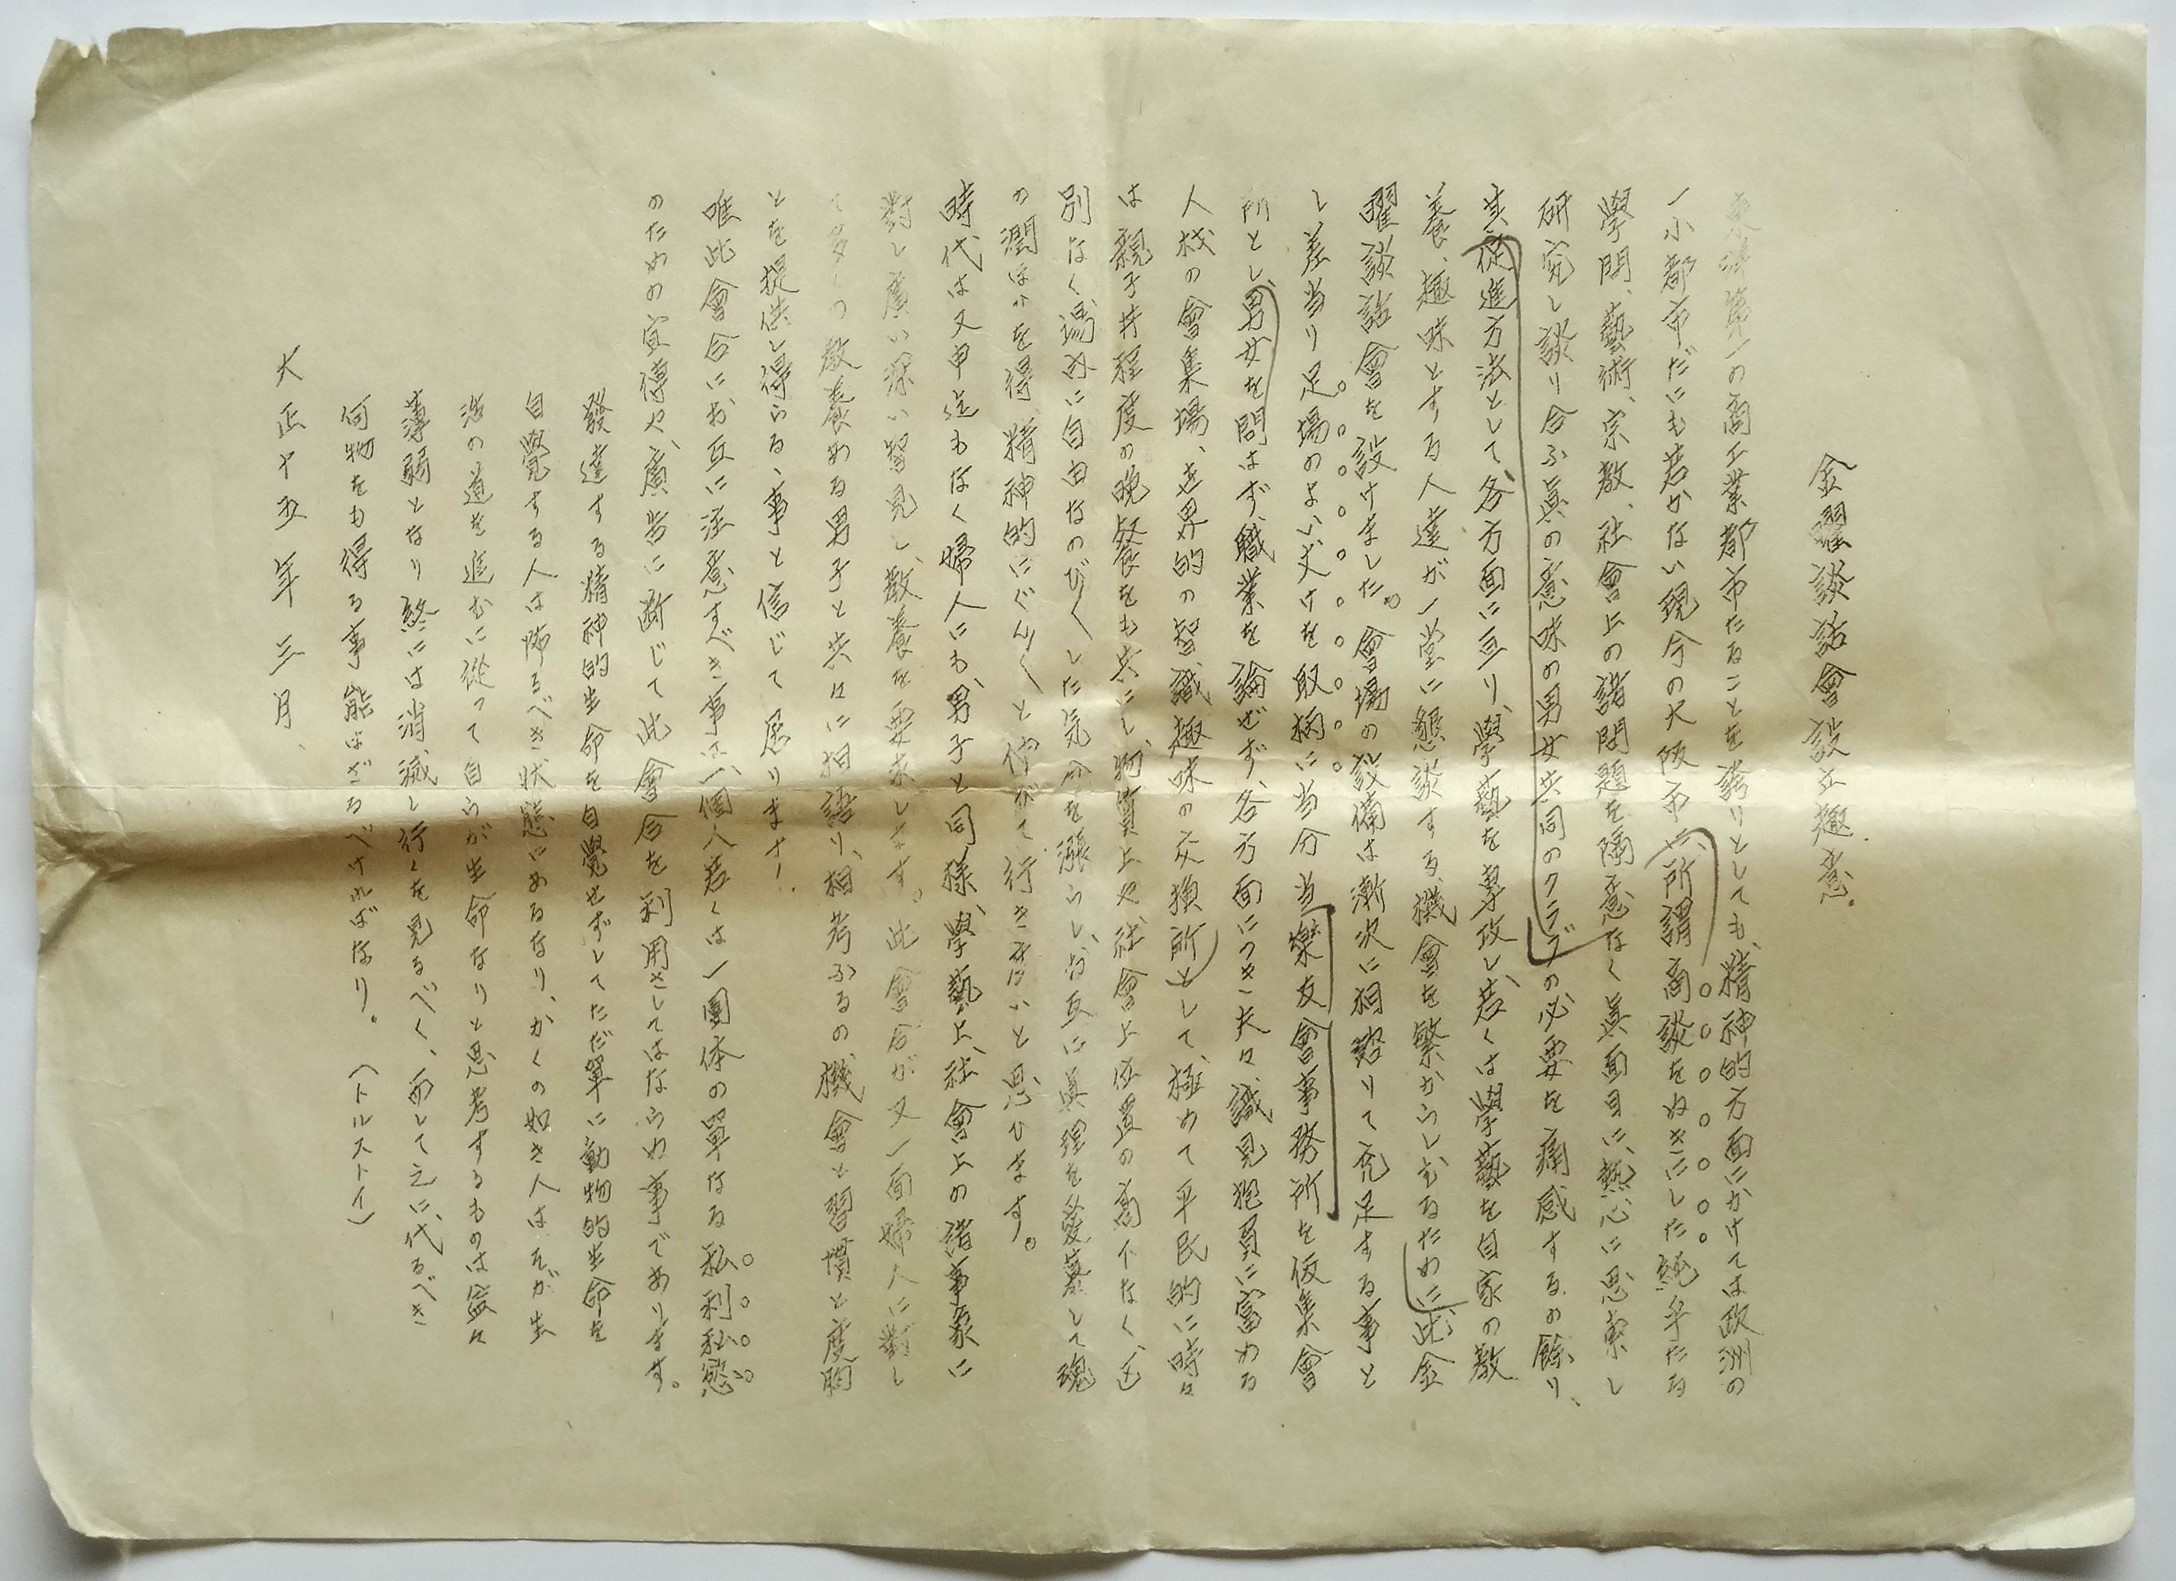 金曜談話會設立趣意。
東洋第一の商工業都市たることを誇りとしても、精神的方面にかけては欧洲の
一小都市だにも若かない現今の大阪市に、所謂商談をぬきにした純乎たる
學問、藝術、宗教、社會上の諸問題を隔意なく眞面目に、熱心に思索し
研究し談り合ふ眞の意味の男女共同のクラブの必要を痛感するの餘り、
其促進方法として、各方面に亘り、學藝を専攻し、若くは學藝を自家の教
養、趣味とする人達が一堂に懇談する、機會を繁からしむるために、此金
曜談話會を設けました。會場の設備は漸次に相談りて充足する事と
し、差当り足場のよい丈けを取柄に当分 当樂友會事務所を仮集會
所とし、男女を問はず、職業を論ぜず、各方面につき夫々識見抱負に富める
人材の會集場、世界的の智識趣味の交換所として、極めて平民的に時々
は親子丼程度の晩餐をも共にし、物質上や社會上位置の高下なく、区
別なく場内に自由なのび〱した気分を漲らし、お互に眞理を愛慕して魂
の潤ほひを得、精神的にぐん〱と伸びて行き度いと思ひます。
時代は又申迄もなく婦人にも、男子と同様、學藝上、社會上の諸事象に
對し廣い深い智見と、教養を要求します。此會合が又一面婦人に對し
て多くの教養ある男子と共々に相語り、相考ふるの機會と習慣と度胸
とを提供し得らる、事と信じて居ります。
唯此會合にお互に注意すべき事は、一個人若くは一團体の單なる私利私慾
のための宣傳や、廣告に断じて此會合を利用さしてはならぬ事であります。
發達する精神的生命を自覺せずしてただ單に動物的生命を
自覺する人は怖るべき状態にあるなり、かくの如き人はそが生
活の道を進むに從って自らが生命なりと思考するものは益々
薄弱となり終には消滅し行くを見るべく、而して之に代るべき
何物をも得る事能はざるべければなり。 （トルストイ）
大正十五年三月、